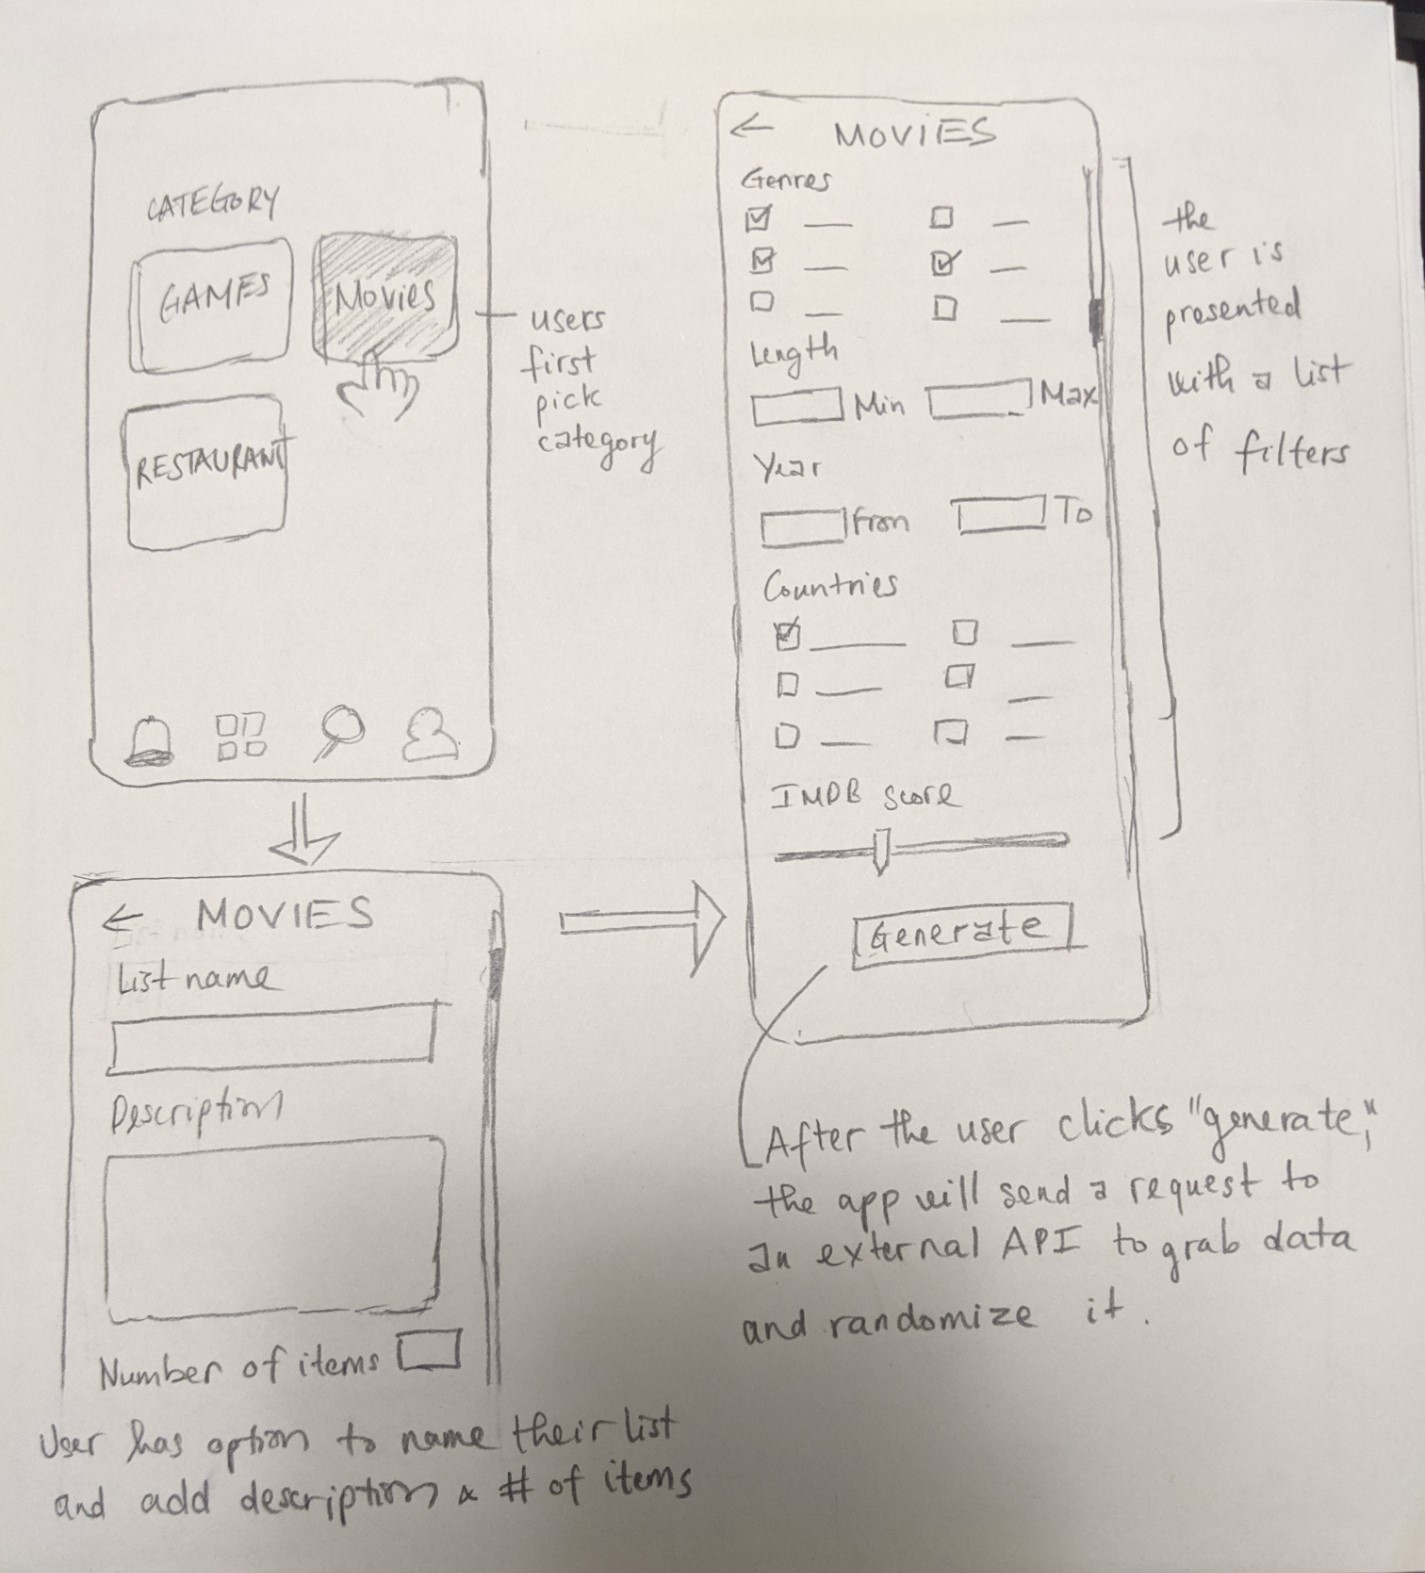 CATEGORY
GAMES
Movies
RESTAURANT
users
first
pick
category
← MOVIES
List name
Description
Number of items
User has option to name their list
and add description & # of items
← MOVIES
Genres
Length
Min
Max
Year
From
To
Countries
IMDB score
Generate
the
user is
presented
with a list
of filters
After the user clicks "generate,"
the app will send a request to
an external API to grab data
and randomize it.